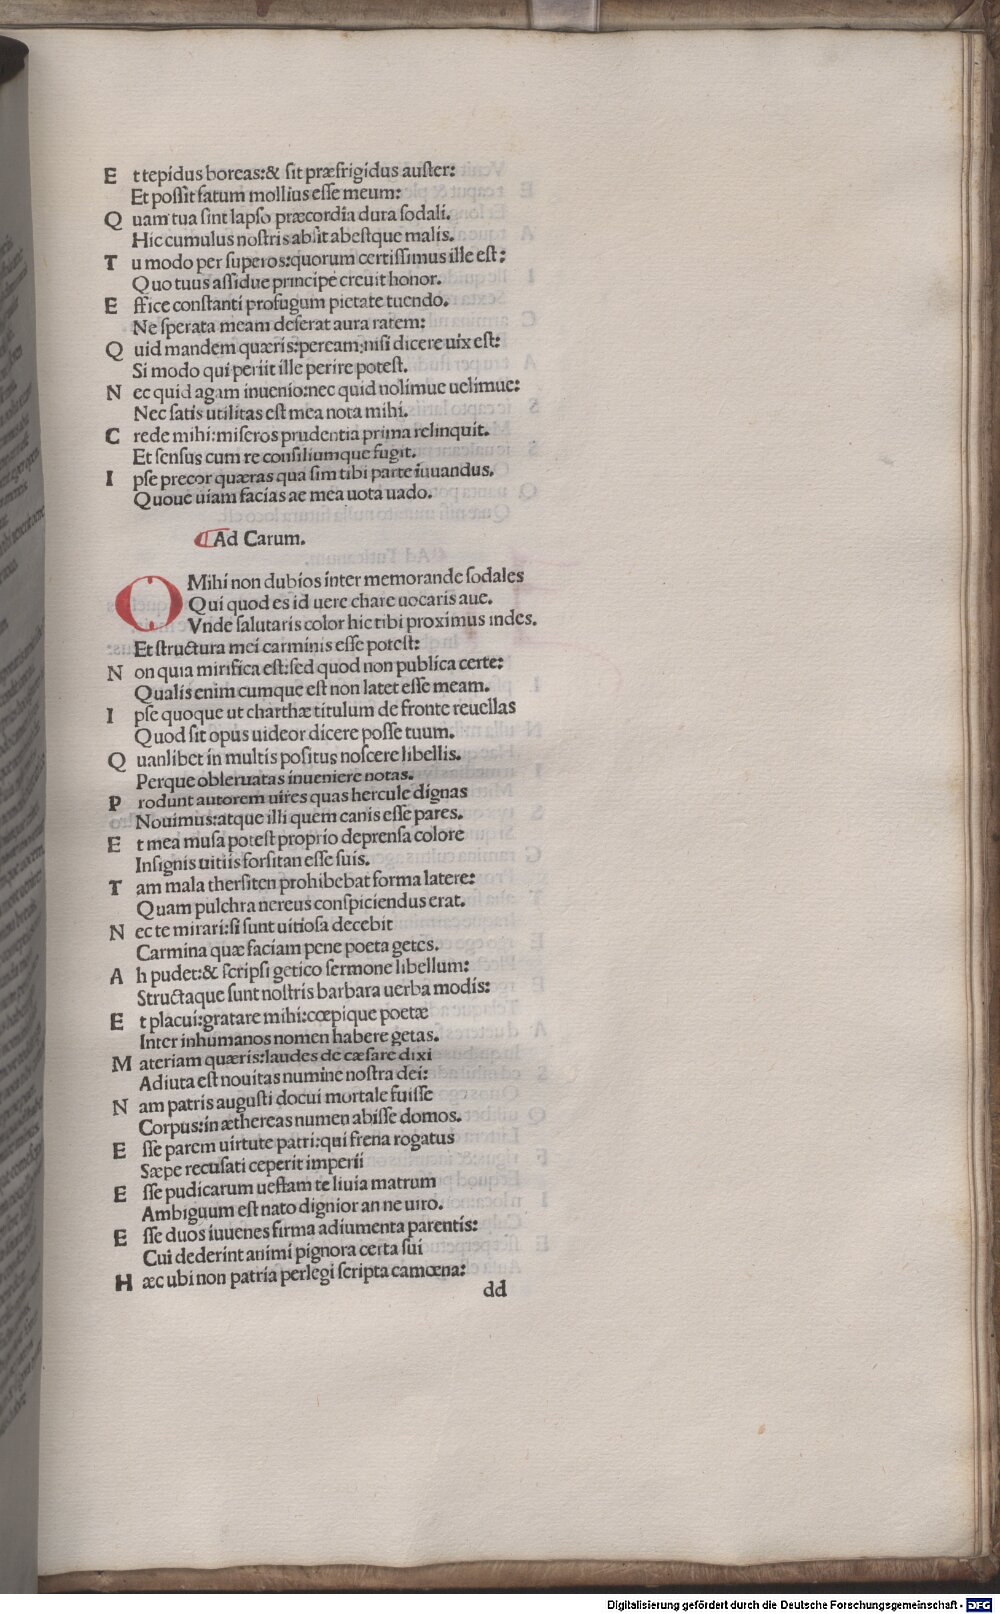 E t tepidus boreas:& sit præfrigidus auster:
Et possit fatum mollius esse meum:
Q uam tua sint lapso præcordia dura sodali.
Hic cumulus nostris absit abestque malis.
T u modo per superos:quorum certissimus ille est:
Quo tuus assidue principe creuit honor.
E ffice constanti profugum pietate tuendo.
Ne sperata meam deserat aura ratem:
Q uid mandem quæris:peream:nisi dicere uix est:
Si modo qui periit ille perire potest.
N ec quid agam inuenio:nec quid nolimue uelimue:
Nec satis utilitas est mea nota mihi.
C rede mihi:miseros prudentia prima relinquit.
Et sensus cum re consiliumque fugit.
I pse precor quæras qua sim tibi parte iuuandus.
Quoue uiam facias ae mea uota uado.
Ad Carum.
O Mihi non dubios inter memorande sodales
Qui quod es id uere chare uocaris aue.
Vnde salutaris color hic tibi proximus indes.
Et structura mei carminis esse potest:
N on quia mirifica est:sed quod non publica certe:
Qualis enim cumque est non latet esse meam.
I pse quoque ut charthæ titulum de fronte reuellas
Quod sit opus uideor dicere posse tuum.
Q uanlibet in multis positus noscere libellis.
Perque obseruatas inueniere notas.
P rodunt autorem uires quas hercule dignas
Nouimus:atque illi quem canis esse pares.
E t mea musa potest proprio deprensa colore
Insignis uitiis forsitan esse suis.
T am mala thersiten prohibebat forma latere:
Quam pulchra nereus conspiciendus erat.
N ec te mirari:si sunt uitiosa decebit
Carmina quæ faciam pene poeta getes.
A h pudet:& scripsi getico sermone libellum:
Structaque sunt nostris barbara uerba modis:
E t placui:gratare mihi:cœpique poetæ
Inter inhumanos nomen habere getas.
M ateriam quæris:laudes de cæsare dixi
Adiuta est nouitas numine nostra dei:
N am patris augusti docui mortale fuisse
Corpus:in æthereas numen abisse domos.
E sse parem uirtute patri:qui frena rogatus
Sæpe recusati ceperit imperii
E sse pudicarum uestam te liuia matrum
Ambiguum est nato dignior an ne uiro.
E sse duos iuuenes firma adiumenta parentis:
Cui dederint animi pignora certa sui
H æc ubi non patria perlegi scripta camœna:
dd
Digitalisierung gefördert durch die Deutsche Forschungsgemeinschaft - DFG